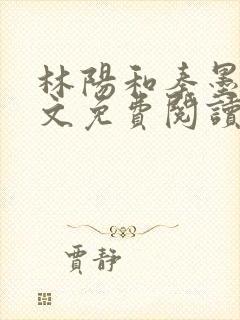 林陽和秦墨
文免費閱讀
賈靜